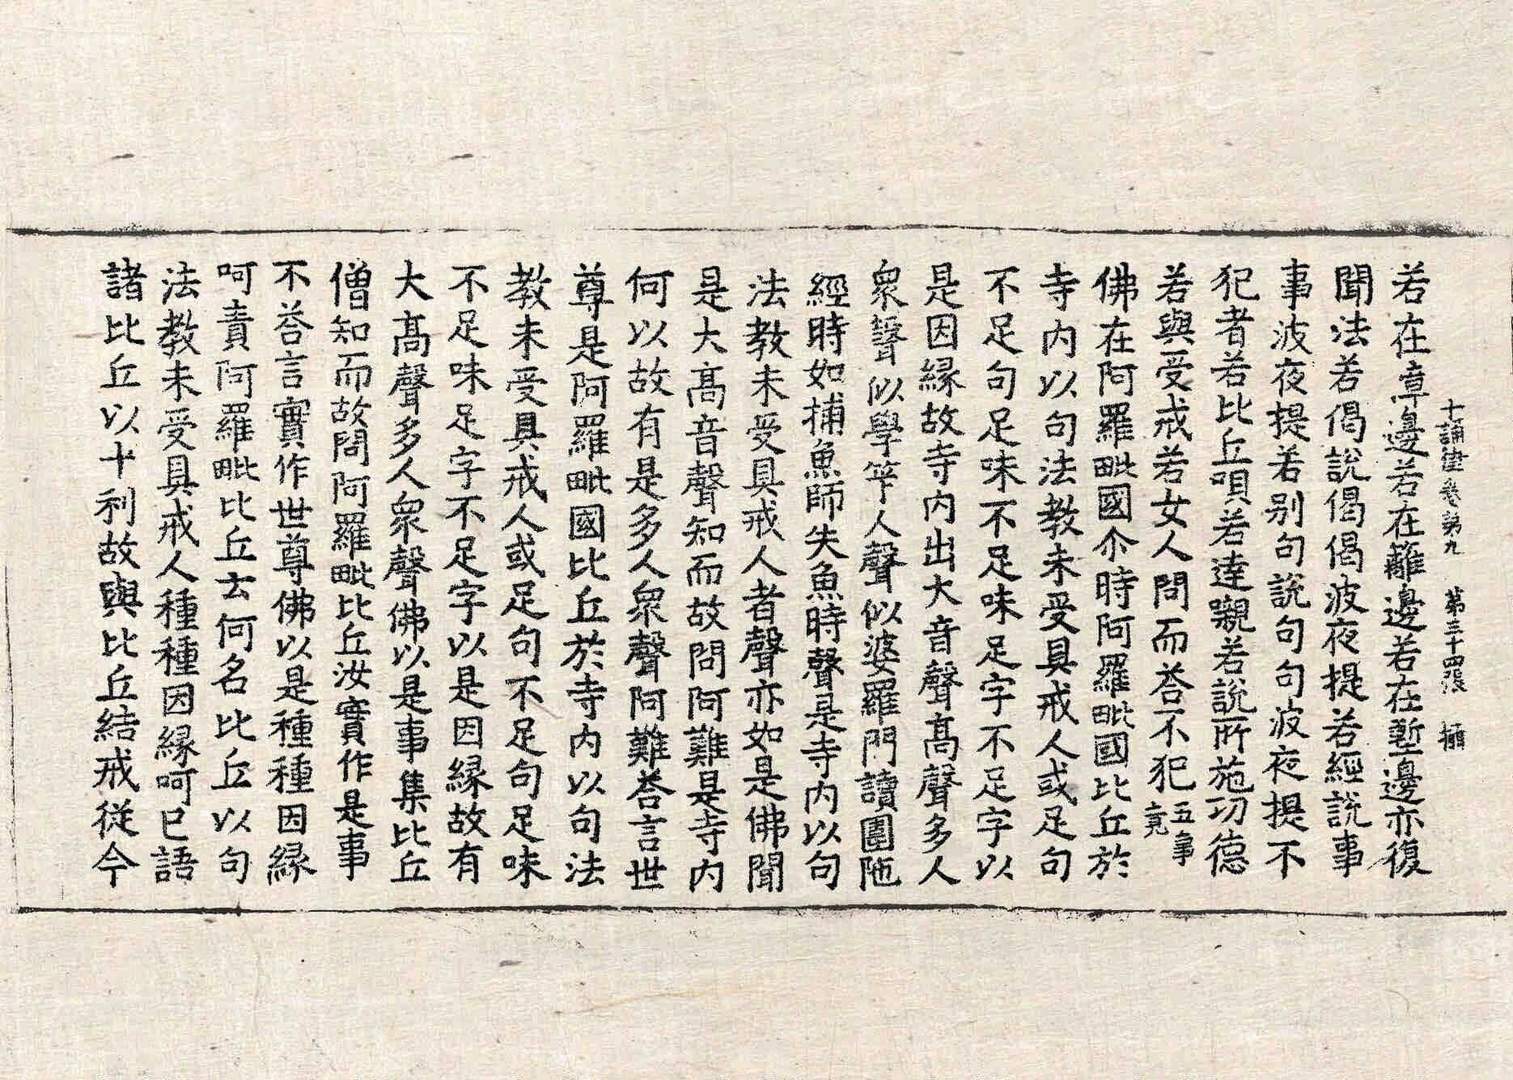 十誦律卷第九 第三十四張 攝
若在𡱁邊若在離邊若在壍邊亦復
聞法若偈說偈偈波夜提若經說事
事波夜提若別句說句句波夜提不
犯者若比丘唄若達嚫若說所施功德
若與受戒若女人問而荅不犯五事竟
佛在阿羅毗國尒時阿羅毗國比丘於
寺內以句法教未受具戒人或足句
不足句足味不足味足字不足字以
是因緣故寺內出大音聲高聲多人
衆聲似學筭人聲似婆羅門讀圍陁
經時如捕魚師失魚時聲是寺內以句
法教未受具戒人者聲亦如是佛聞
是大髙音聲知而故問阿難是寺內
何以故有是多人衆聲阿難荅言世
尊是阿羅毗國比丘於寺內以句法
教未受具戒人或足句不足句足味
不足味足字不足字以是因緣故有
大髙聲多人衆聲佛以是事集比丘
僧知而故問阿羅毗比丘汝實作是事
不荅言實作世尊佛以是種種因緣
呵責阿羅毗比丘云何名比丘以句
法教未受具戒人種種因緣呵已語
諸比丘以十利故與比丘結戒從今